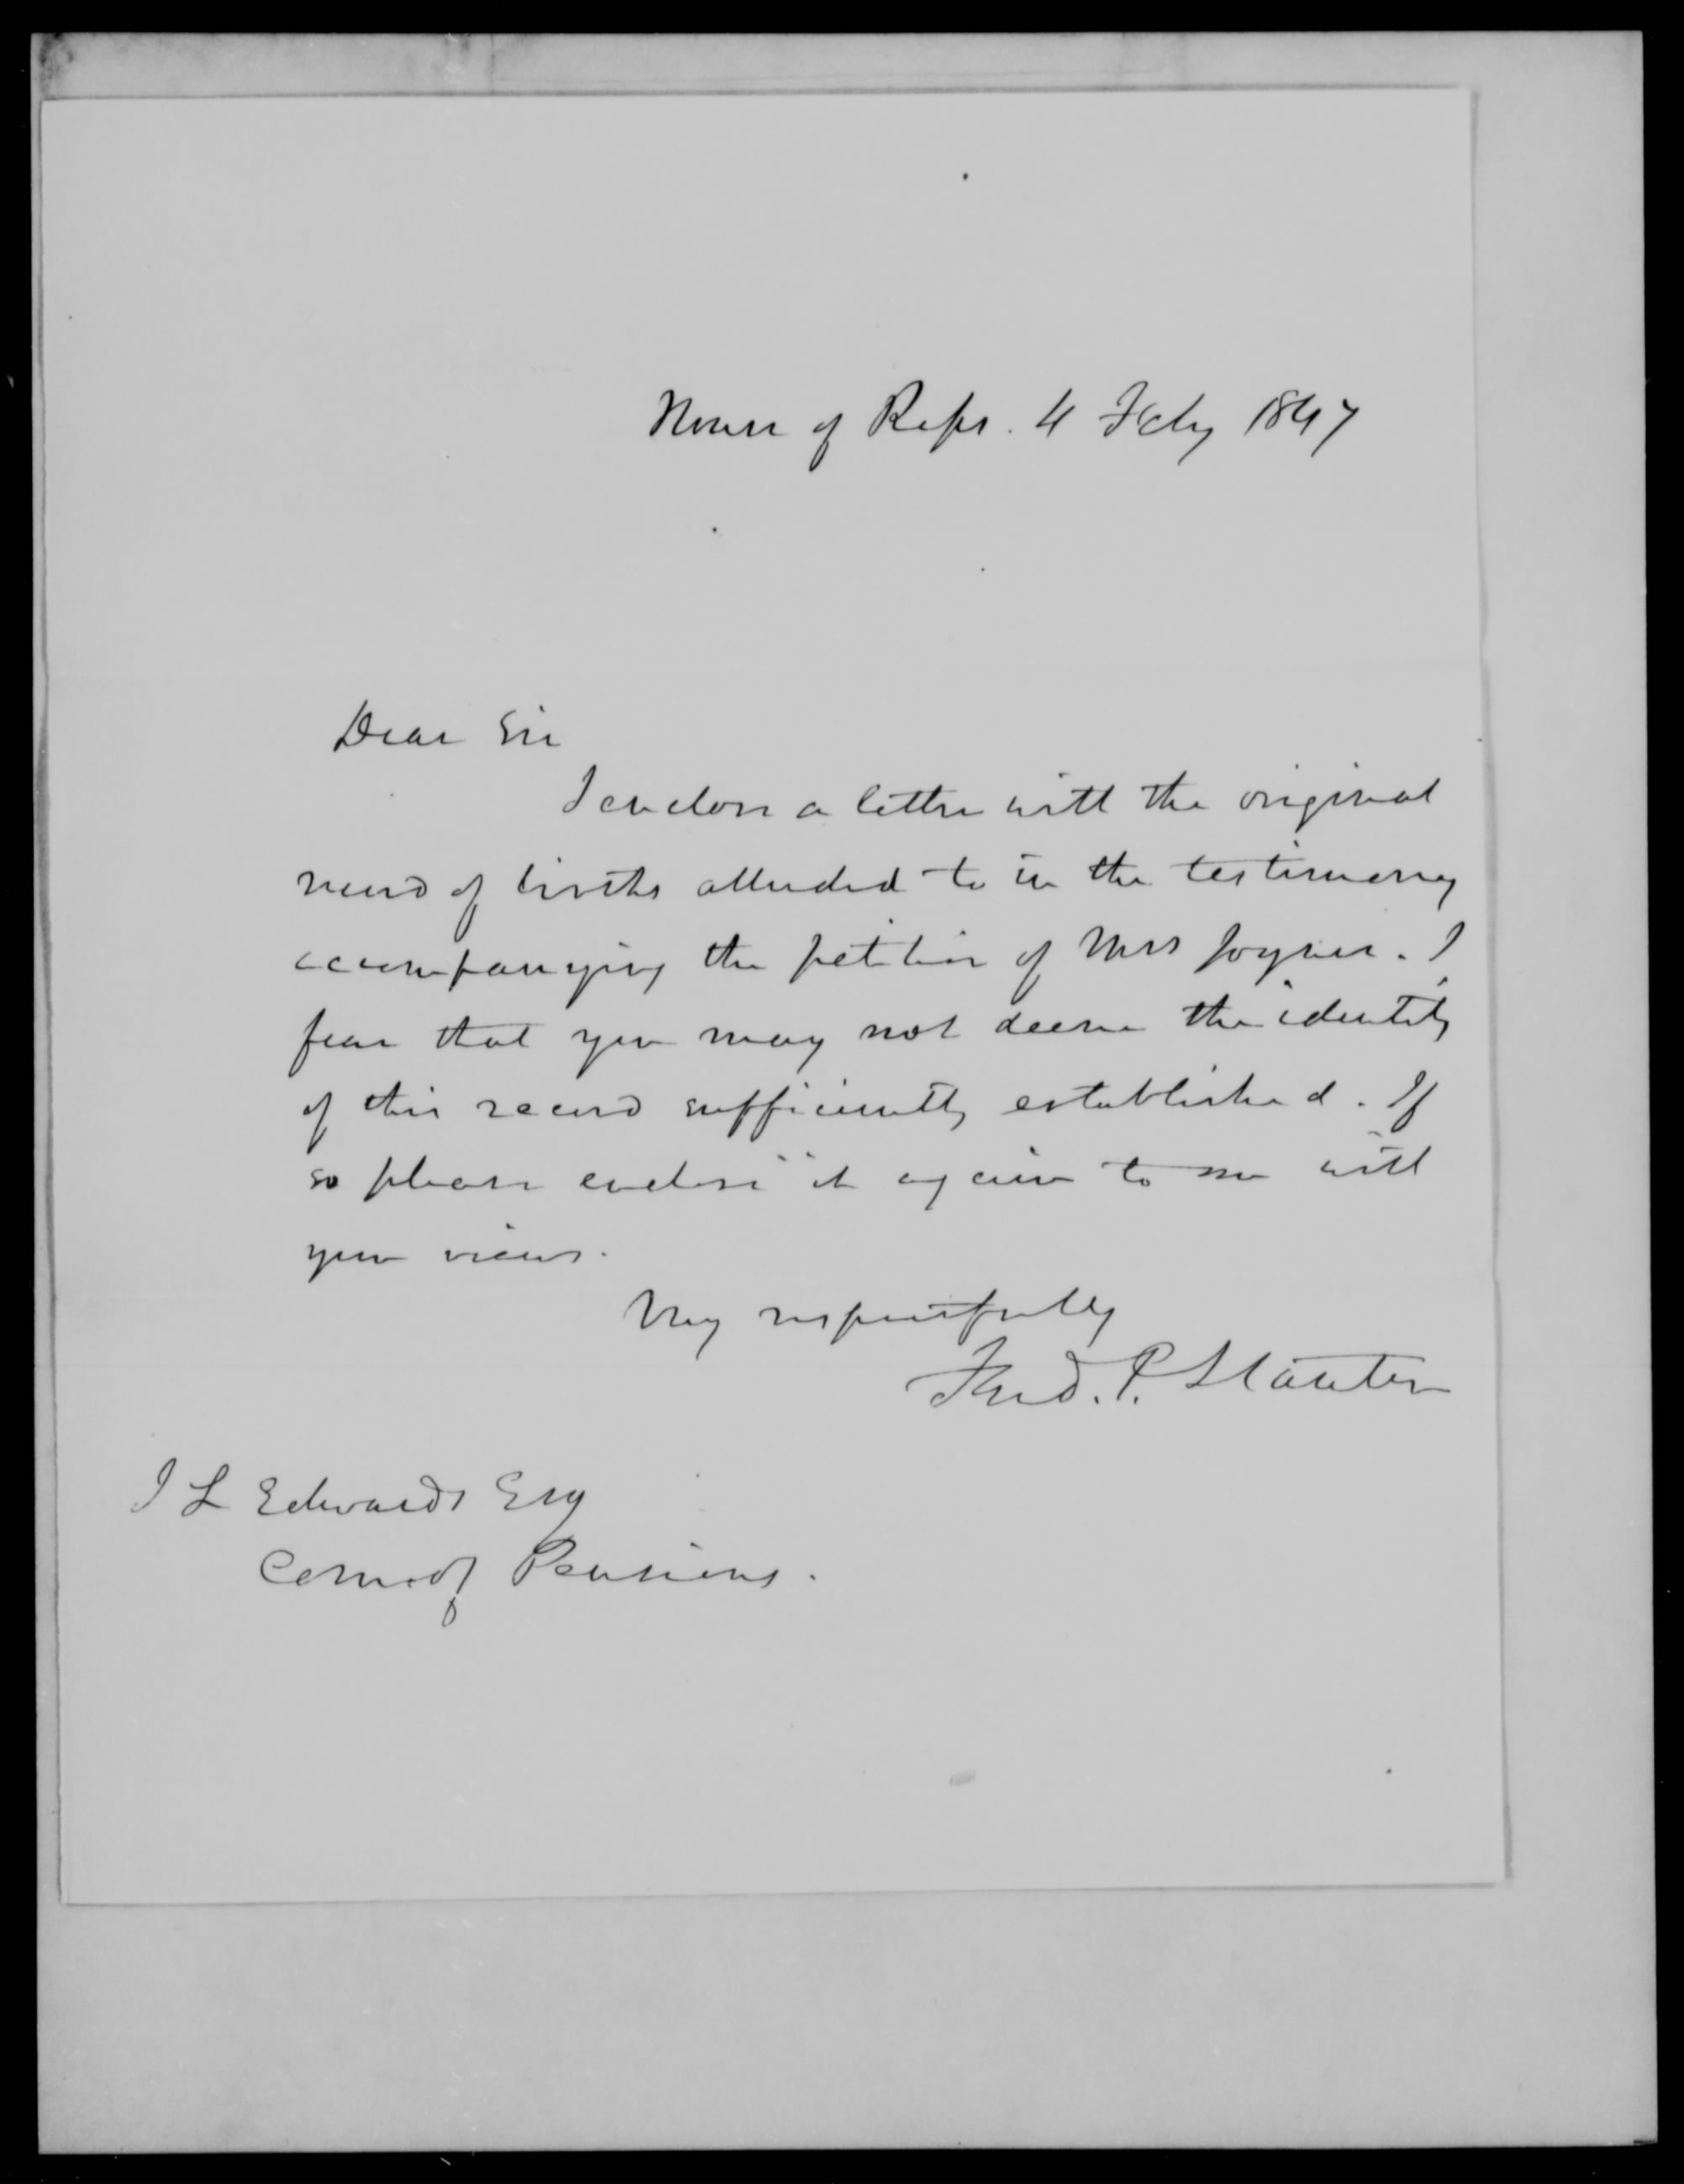 House of Reps. 4 Feby 1847
Dear Sir
I enclose a letter with the original
record of births alluded to in the testimony
accompanying the petition of Mrs Joyner. I
fear that you may not deem the identity
of this record sufficiently established. If
so please enclose it again to me with
your views.
Very respectfully
Fred. P. Stanton
J L Edwards Esq
Com. of Pensions.